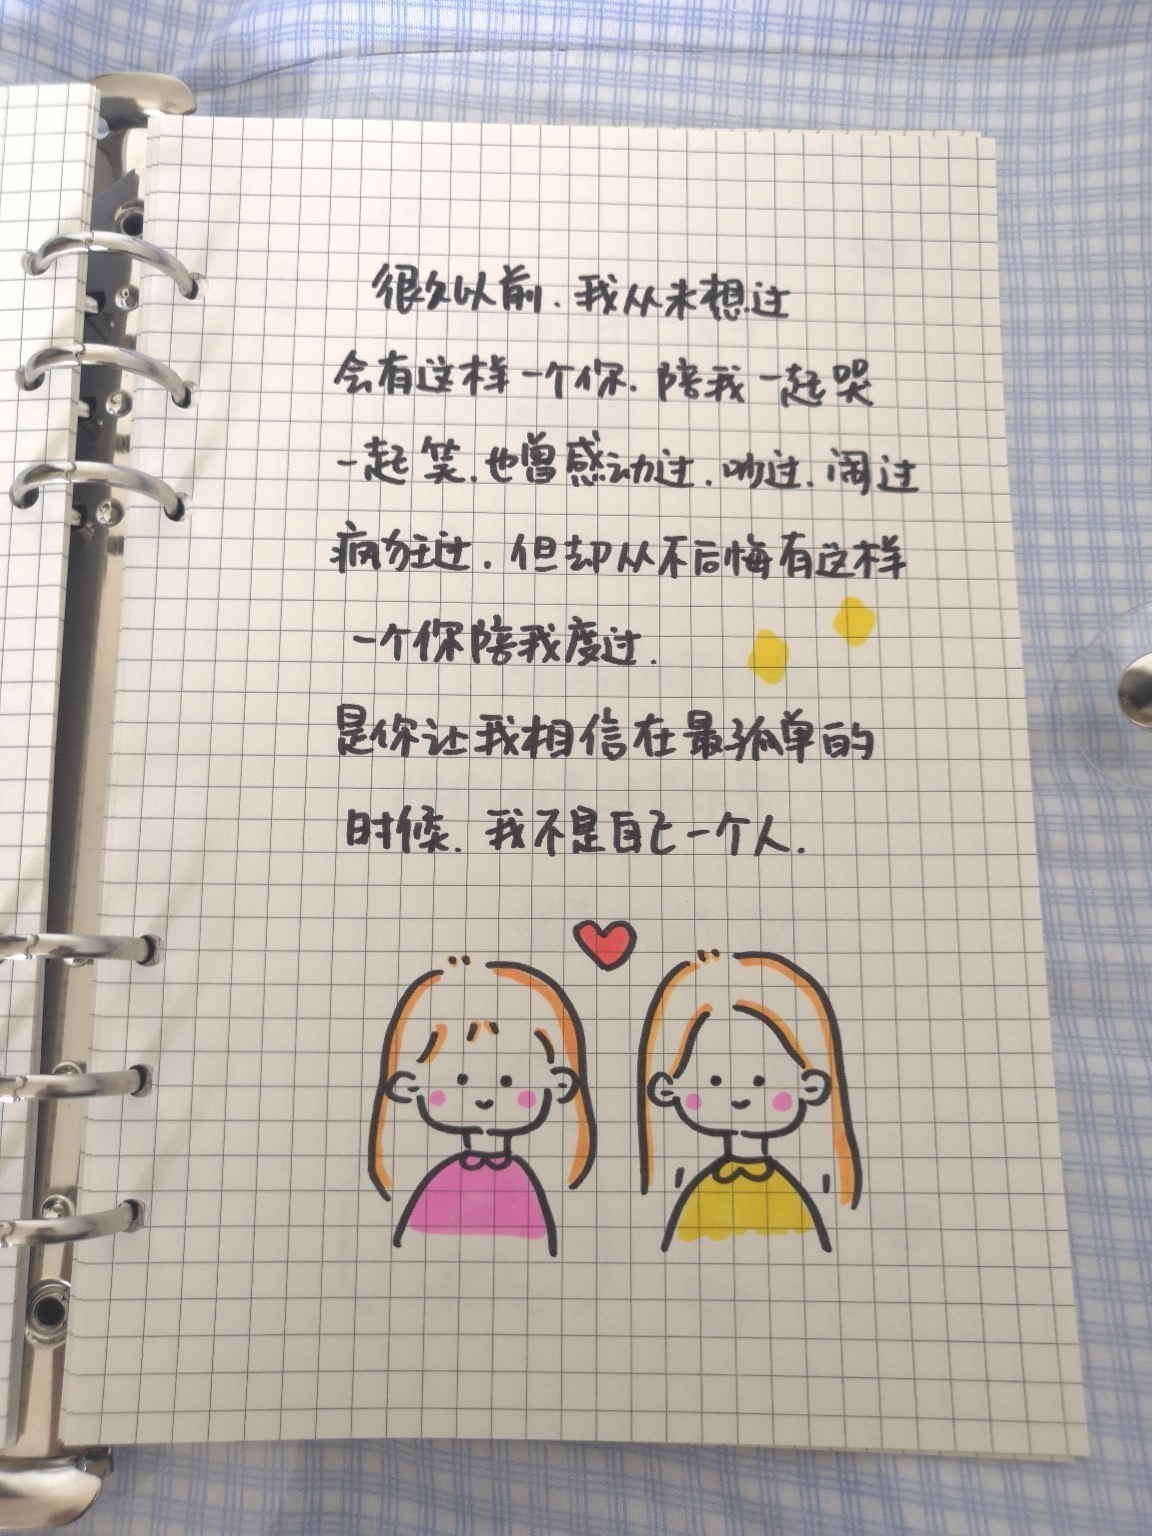 很久以前.我从未想过
会有这样一个你.陪我一起哭
一起笑.也曾感动过.吵过.闹过
疯狂过.但却从不后悔有这样
一个你陪我度过.
是你让我相信在最孤单的
时候.我不是自己一个人.